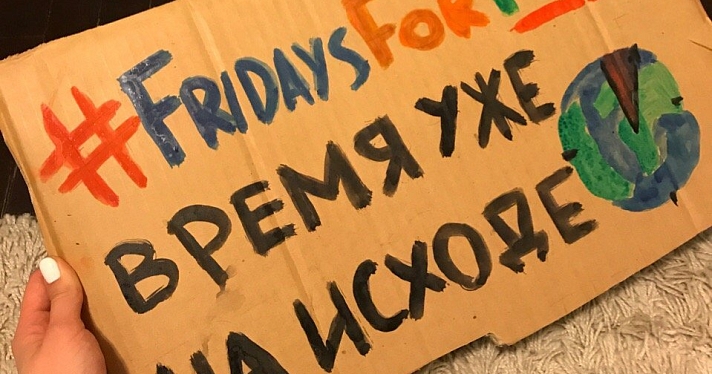 #FRIDAYSFOR
ВРЕМЯ УЖЕ
НА ИСХОДЕ